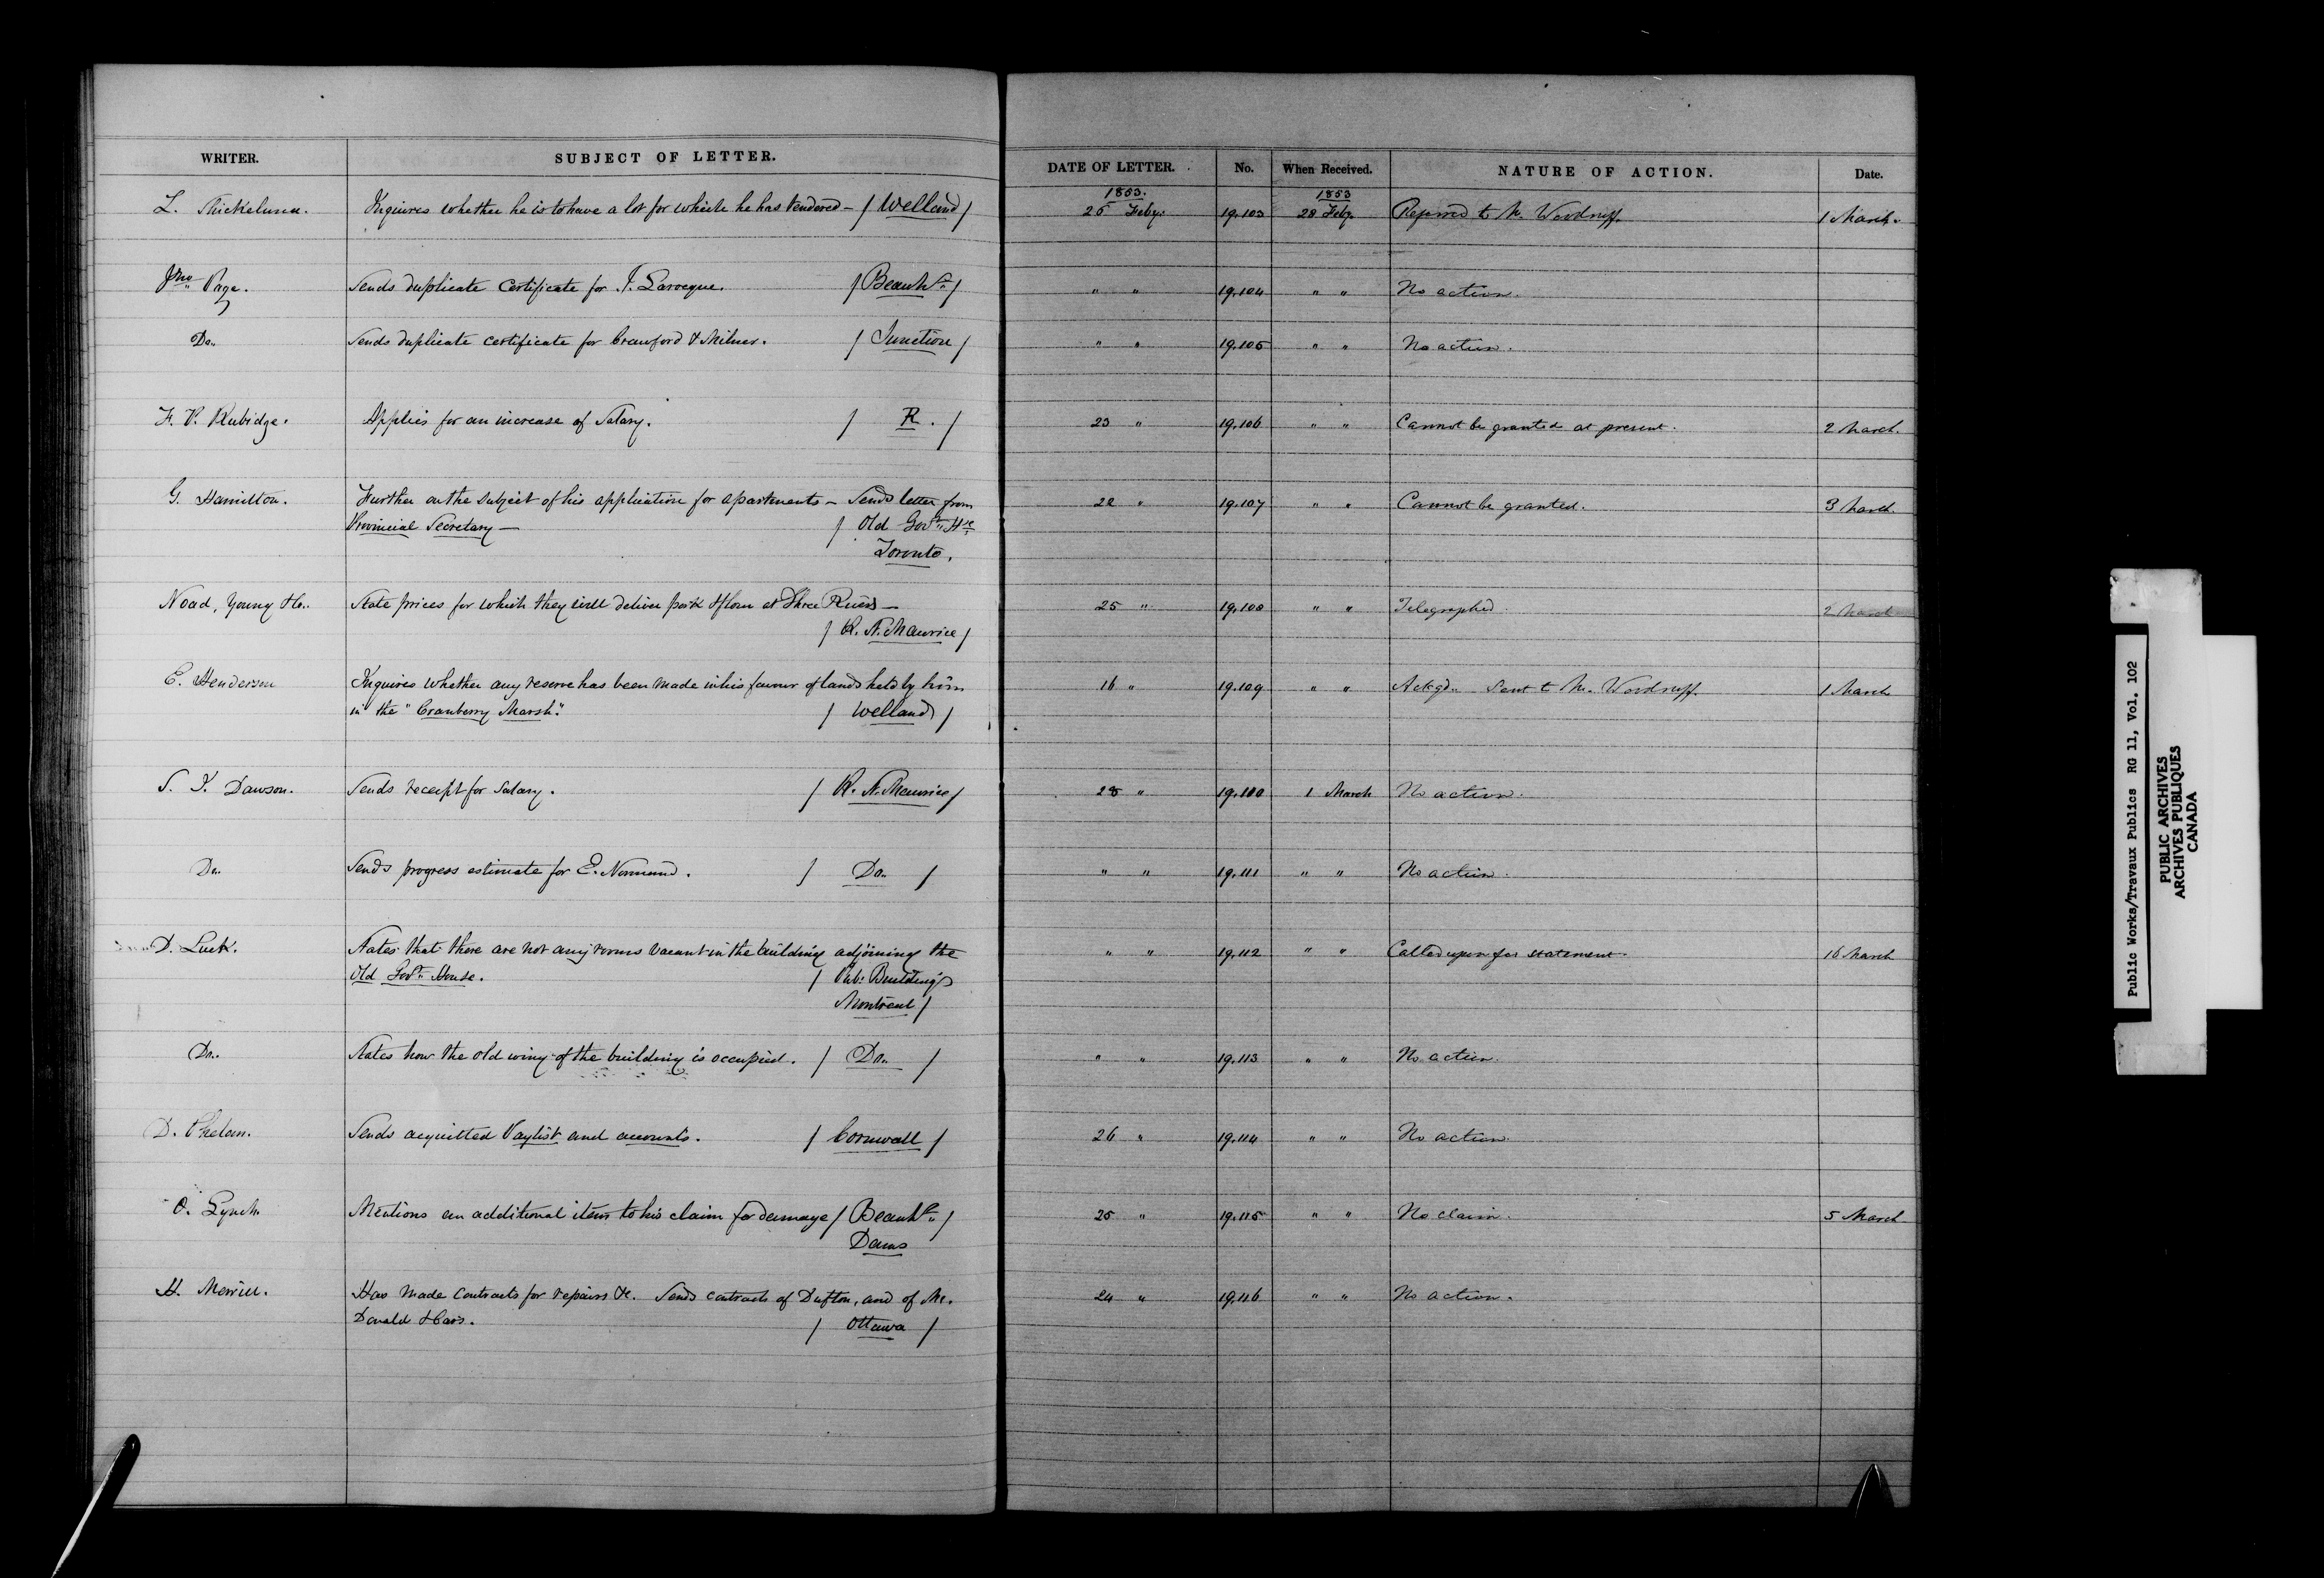 WRITER. SUBJECT OF LETTER. DATE OF LETTER. No. When Received. NATURE OF ACTION. Date.
1853. 1853
Inquires whether he is to have a lot for which he has tendered — / Welland / 25 Feby. 19.103 28 Feby. Referred to Mr. Woodruff. 1 March.
Jno Page. Sends duplicate certificate for J. Larocque. / Beauhs / " " 19.104 " " No action.
Do. Sends duplicate certificate for Crawford & Milner. / Junction / " " 19.105 " " No action.
F. P. Rubidge. Applies for an increase of Salary. / R. / 23 " 19.106 " " Cannot be granted at present. 2 March.
G. Hamilton. Further on the subject of his application for apartments — Sends letter from 22 " 19.107 " " Cannot be granted. 3 March
Provincial Secretary — / Old Govt. Hse
Toronto.
Noad, Young & Co. State prices for which they will deliver pork & flour at Three Rivers — 25 " 19.108 " " Telegraphed. 2 March
/ R. St. Maurice /
E. Henderson Inquires whether any reserve has been made in his favour of lands held by him 16 " 19.109 " " Ackgd. Sent to Mr. Woodruff. 1 March
in the "Cranberry Marsh". / Welland /
S. J. Dawson. Sends receipt for Salary. / R. St. Maurice / 28 " 19.110 1 March No action.
Do. Sends progress estimate for E. Normand. / Do. / " " 19.111 " " No action.
D. Luck. States that there are not any rooms vacant in the building adjoining the " " 19.112 " " Called upon for statement. 16 March
Old Govt. House. / Pub: Buildings
Montreal /
Do. States how the old wing of the building is occupied. / Do. / " " 19.113 " " No action.
D. Phelan. Sends acquitted Paylist and accounts. / Cornwall / 26 " 19.114 " " No action.
O. Lynch. Mentions an additional item to his claim for damage / Beauhs / 25 " 19.115 " " No claim. 5 March
Dams
H. Merrill. Has made contracts for repairs &c. Sends contracts of Dufton, and of Mc. 24 " 19.116 " " No action.
Donald & Cars. / Ottawa /
Public Works/Travaux Publics RG 11, Vol. 102
PUBLIC ARCHIVES
ARCHIVES PUBLIQUES
CANADA